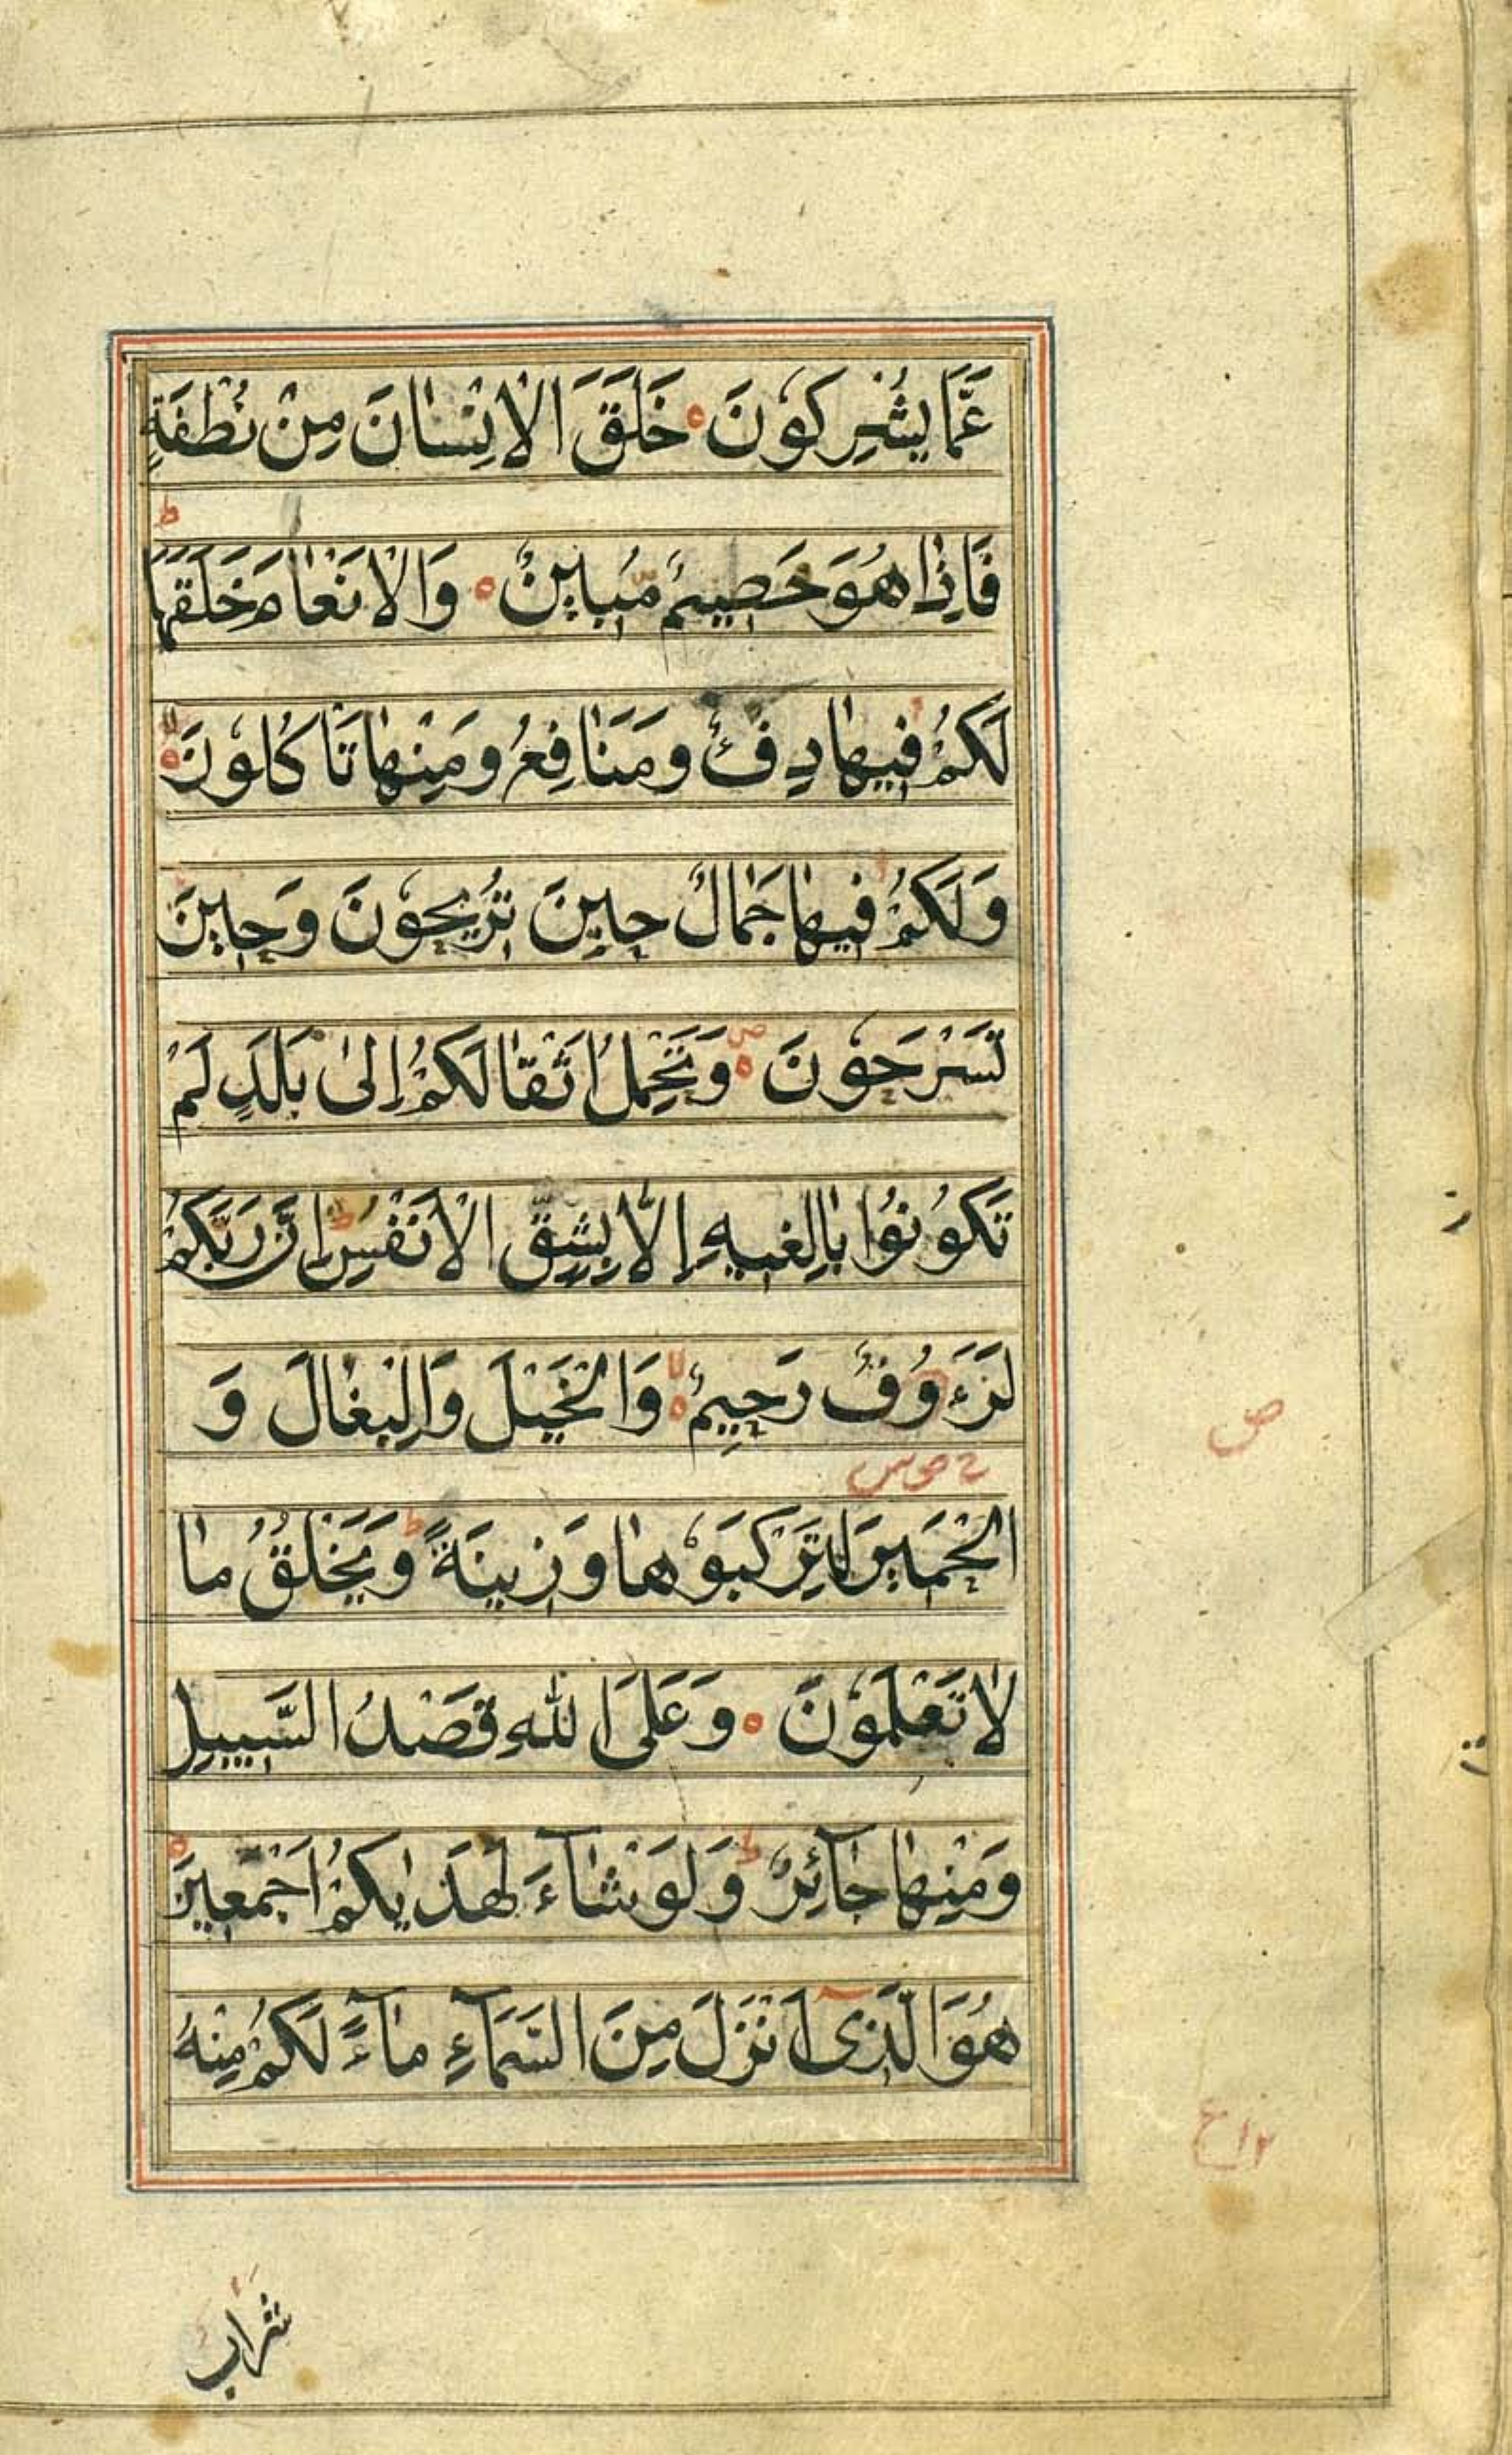 عَمَّا يُشْرِكُونَ ۝ خَلَقَ الْاِنْسَانَ مِنْ نُطْفَةٍ
ط
فَاِذَا هُوَ خَصِيمٌ مُّبِينٌ ۝ وَالْاَنْعَامَ خَلَقَهَا
لَكُمْ فِيهَا دِفْءٌ وَمَنَافِعُ وَمِنْهَا تَاْكُلُونَ ۝
وَلَكُمْ فِيهَا جَمَالٌ حِينَ تُرِيحُونَ وَحِينَ
تَسْرَحُونَ ۝ ص وَتَحْمِلُ اَثْقَالَكُمْ اِلىٰ بَلَدٍ لَمْ
تَكُونُوا بَالِغِيهِ اِلَّا بِشِقِّ الْاَنْفُسِ ط اِنَّ رَبَّكُمْ
لَرَءُوفٌ رَحِيمٌ ۝ لا وَالْخَيْلَ وَالْبِغَالَ وَ
ص
الْحَمِيرَ لِتَرْكَبُوهَا وَزِينَةً ط وَيَخْلُقُ مَا
لَا تَعْلَمُونَ ۝ وَعَلَى اللّٰهِ قَصْدُ السَّبِيلِ
وَمِنْهَا جَآئِرٌ ط وَلَوْ شَآءَ لَهَدٰيكُمْ اَجْمَعِينَ ۝
هُوَ الَّذِى اَنْزَلَ مِنَ السَّمَآءِ مَآءً لَكُمْ مِنْهُ
شراب